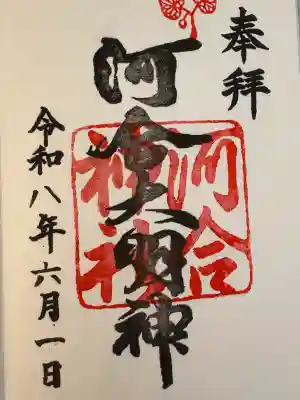 奉拝
河合大明神
河合
神社
令和八年六月一日